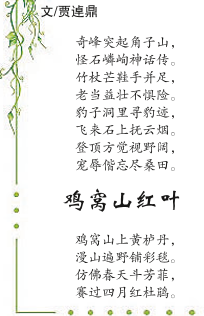 文/贾逴鼎
奇峰突起角子山，
怪石嶙峋神话传。
竹杖芒鞋手并足，
老当益壮不惧险。
豹子洞里寻豹迹，
飞来石上抚云烟。
登顶方觉视野阔，
宠辱偕忘尽桑田。
鸡窝山红叶
鸡窝山上黄栌丹，
漫山遍野铺彩毯。
仿佛春天斗芳菲，
赛过四月红杜鹃。